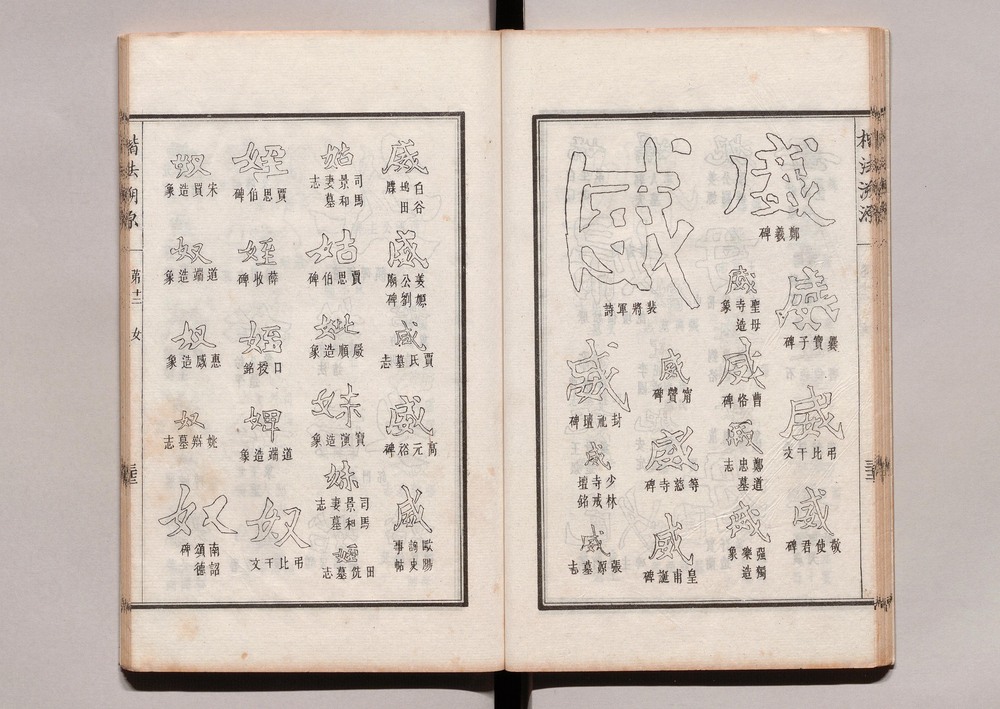 威
鄭羲碑
威
爨寶子碑
威
弔比干文
威
敬使君碑
威
聖母寺造象
威
曹恪碑
威
鄭道忠墓志
威
强獨樂造象
威
裴將軍詩
威
甯贙碑
威
等慈寺碑
威
皇甫誕碑
威
封祀壇碑
威
少林寺戒壇銘
威
張源墓志
威
白谷塢田牒
威
姜嫄公劉廟
威
賈氏墓志
威
高元裕碑
威
歐陽詢史事帖
姑
司馬景和妻墓志
姑
賈思伯碑
姚
嚴順造象
妹
寶演造象
妹
司馬景和妻墓志
姪
田侁墓志
姪
賈思伯碑
姪
薛收碑
姪
口稜銘
婢
道端造象
奴
弔比干文
奴
宋買造象
奴
道端造象
奴
惠感造象
奴
姚辯墓志
奴
南詔德頌碑
楷法溯源 第十二 女